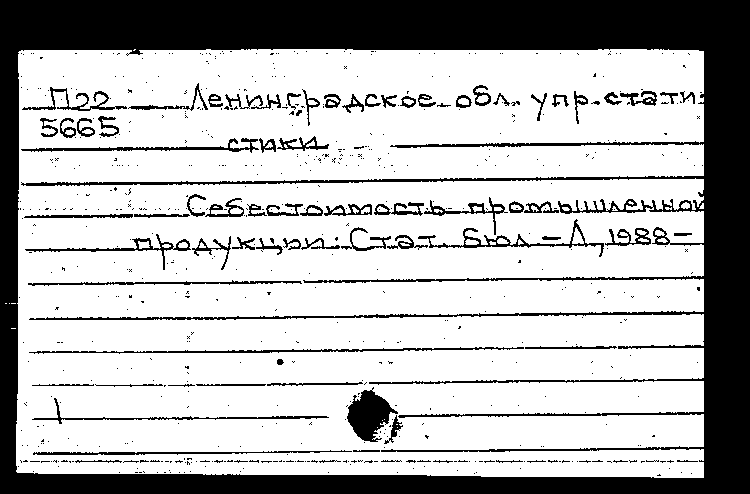 П22 Ленинградское обл. упр. стати-
5665
стики
Себестоимость промышленной
продукции: Стат. бюл - Л., 1988-
1